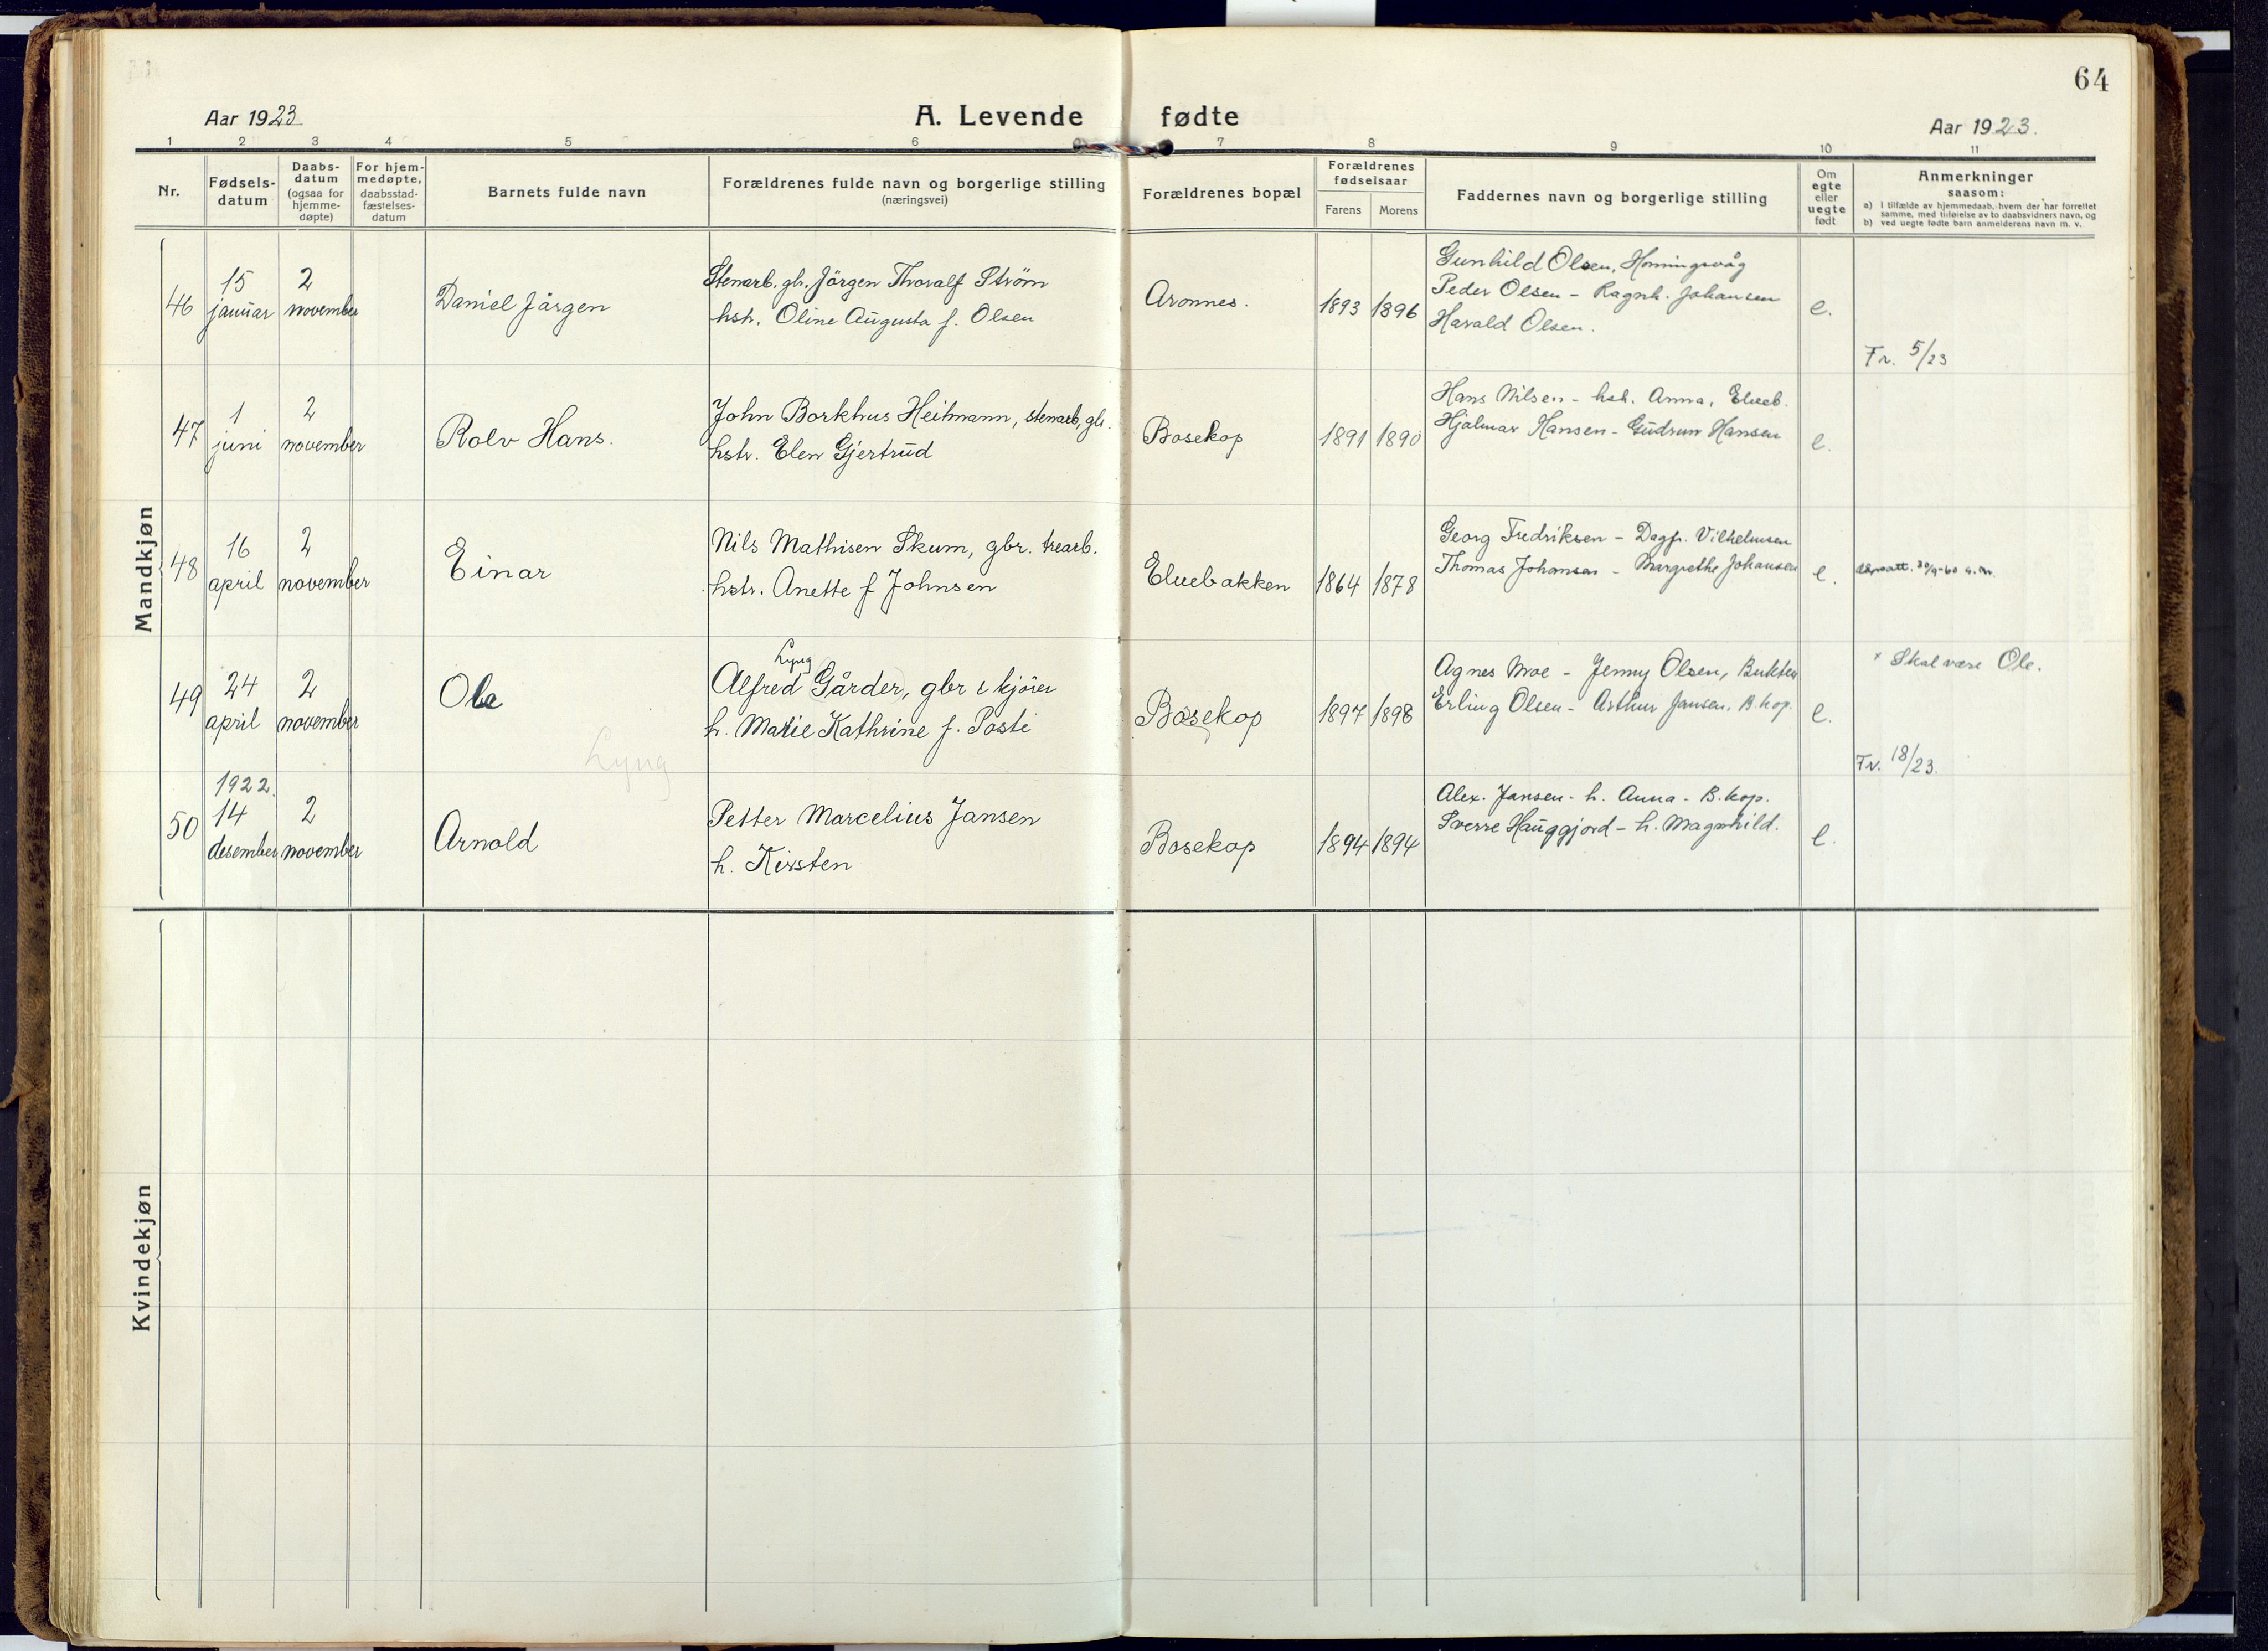 64
Aar 1923
A. Levende fødte
Aar 1923.
1 2 3 4 5 6 7 8 9 10 11
Nr.
Fødsels-
datum
Daabs-
datum
(ogsaa for
hjemme-
døpte)
For hjem-
medøpte,
daabsstad-
fæstelses-
datum
Barnets fulde navn
Forældrenes fulde navn og borgerlige stilling
(næringsvei)
Forældrenes bopæl
Forældrenes
fødselsaar
Farens Morens
Faddernes navn og borgerlige stilling
Om
egte
eller
uegte
født
Anmerkninger
saasom:
a) i tilfælde av hjemmedaab, hvem der har forrettet
samme, med tilføielse av to daabsvidners navn, og
b) ved uegte fødte barn anmelderens navn m. v.
Mandkjøn
46
15
januar
2
november
Daniel Jörgen
Stenarb. gb. Jörgen Thoralf Strøm
hstr. Oline Augusta f. Olsen
Aronnes.
1893 1896
Gunhild Olsen, Honningsvåg
Peder Olsen - Ragnh. Johansen
Harald Olsen.
e.
Fr. 5/23
47
1
juni
2
november
Rolv Hans.
John Borkhus Heitmann, stenarb, gb.
hstr. Elen Gjertrud
Bosekop
1891 1890
Hans Nilsen - hst. Anna, Elveb.
Hjalmar Hansen - Gudrun Hansen
e.
48
16
april
2
november
Einar
Nils Mathisen Skum, gbr. trearb.
hstr. Anette f Johnsen
Elvebakken
1864 1878
Georg Fredriksen - Dagfr. Vilhelmsen
Thomas Johansen - Margrethe Johansen
e.
30/9-60
49
24
april
2
november
Ole
Lyng
Alfred Gårder, gbr & kjörer
h. Marie Kathrine f. Posti
Lyng
Bosekop
1897 1898
Agnes Moe - Jenny Olsen, Bukten
Erling Olsen - Arthur Jansen, B.kop.
e.
x Skal være Ole.
Fr. 18/23.
50
1922.
14
desember
2
november
Arnold
Petter Marcelius Jansen
h. Kirsten
Bosekop
1894 1894
Alex. Jansen - h. Anna - B.kop.
Sverre Hauggjord - h. Magnhild.
e.
Kvindekjøn